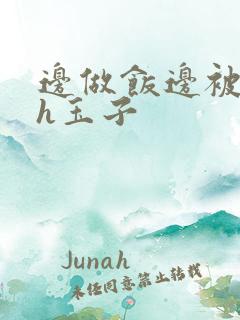 邊做飯邊被
h玉子
Junah
未经同意禁止转载